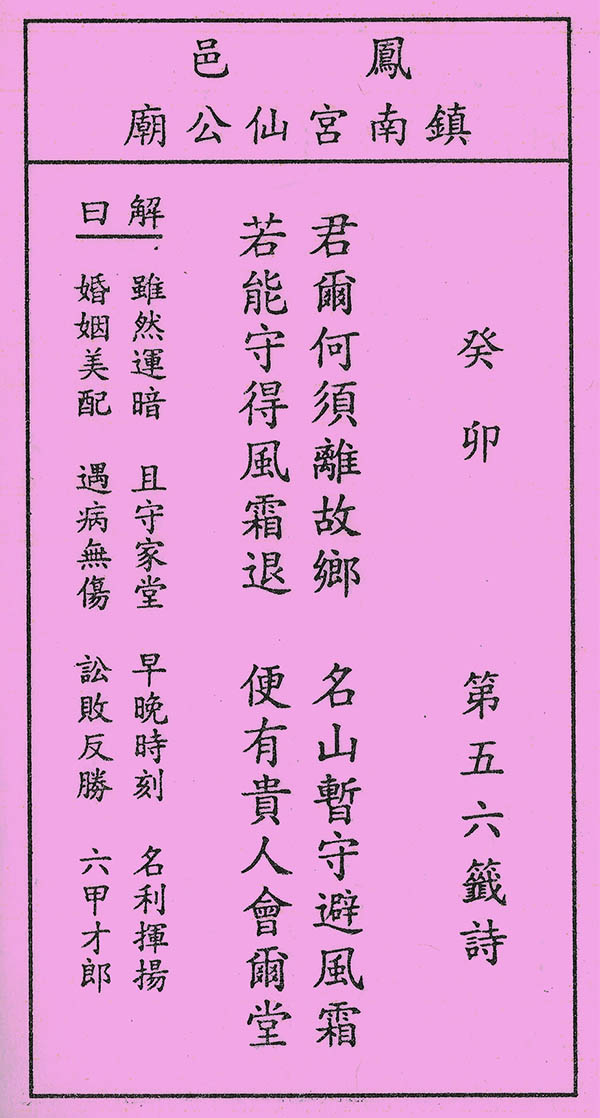 鳳邑
鎮南宮仙公廟
癸卯 第五六籤詩
君爾何須離故鄉 名山暫守避風霜
若能守得風霜退 便有貴人會爾堂
解曰
雖然運暗 且守家堂 早晚時刻 名利揮揚
婚姻美配 遇病無傷 訟敗反勝 六甲才郎